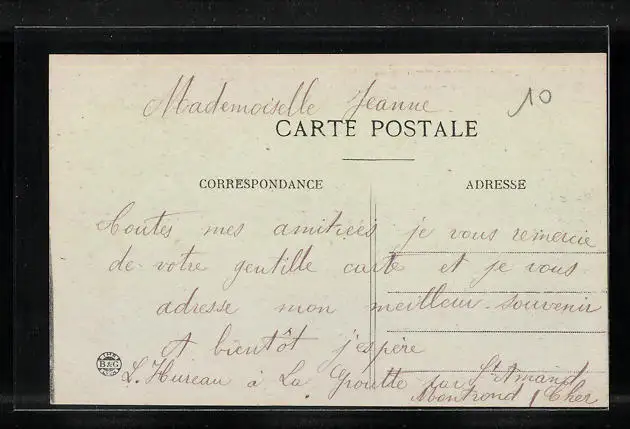 Mademoiselle Jeanne
10
CARTE POSTALE
CORRESPONDANCE
ADRESSE
Toutes mes amitiées je vous remercie
de votre gentille carte et je vous
adresse mon meilleur souvenir
A bientôt j'espère
L. Hureau à La Groutte par St Amand
Montrond / Cher
B & G